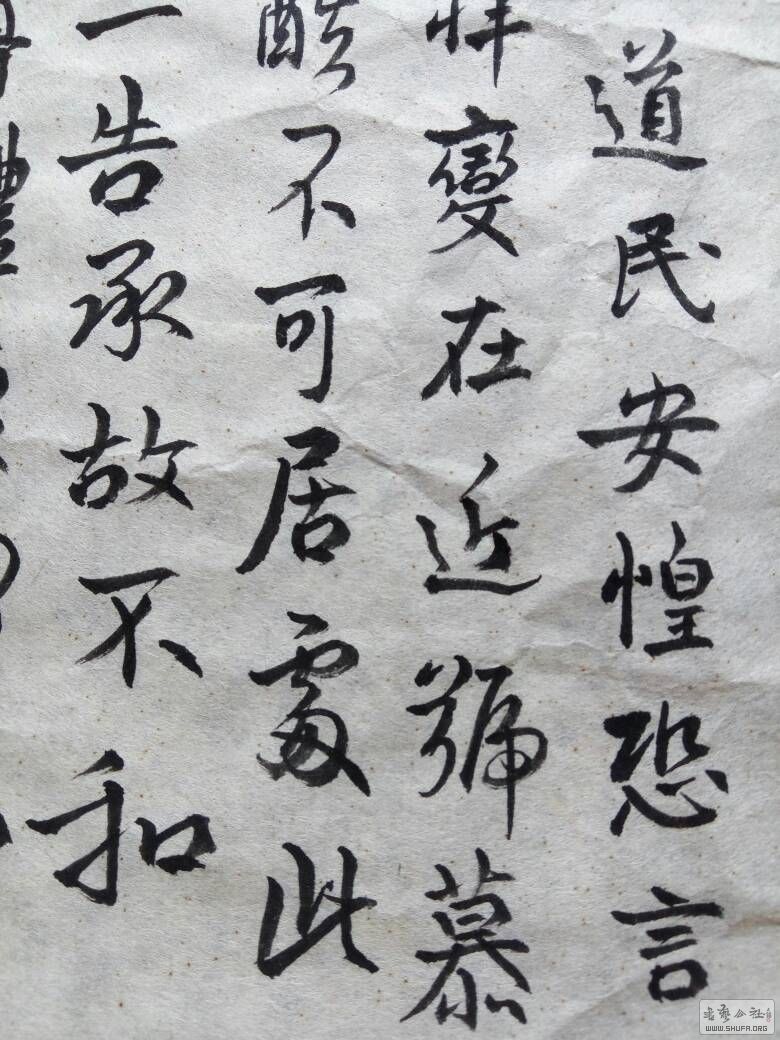 道民安惶恐言
祥變在近號慕
酷不可居處此
一告承故不和
體
書藝公社
WWW.SHUFA.ORG